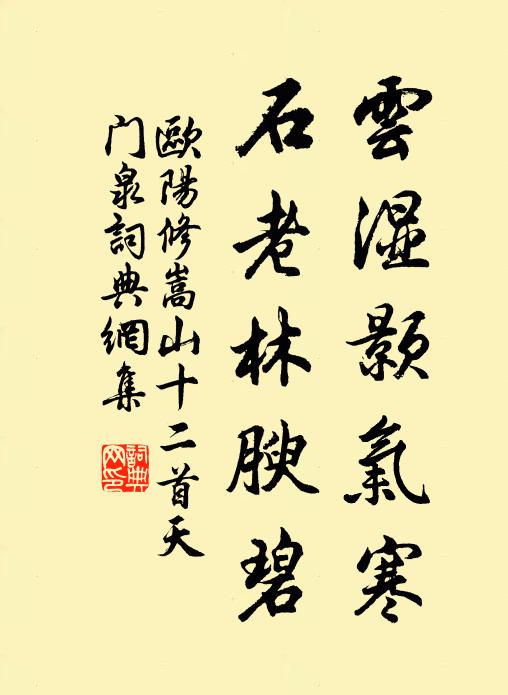 雲濕顥氣寒
石老林腴碧
歐陽修嵩山十二首天
门泉詞典網集
詞典
网印